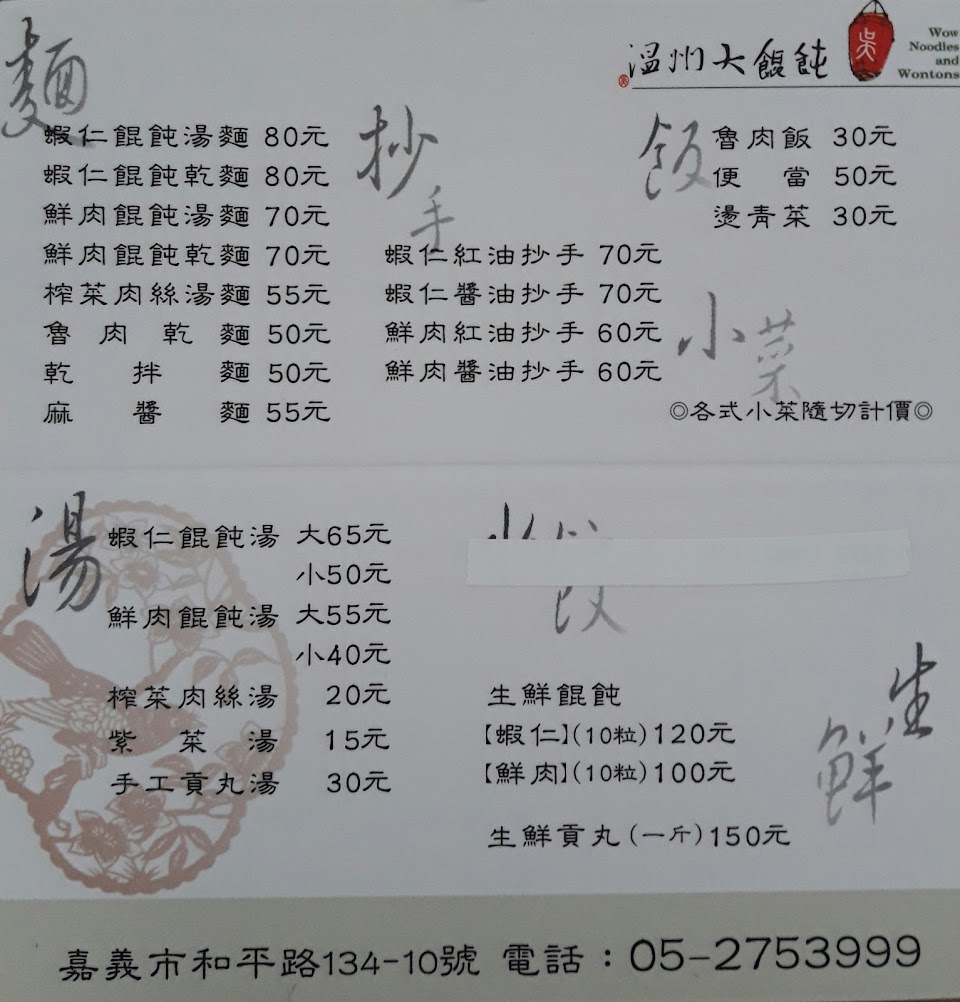 溫州大餛飩
吳
Wow
Noodles
and
Wontons
麵
蝦仁餛飩湯麵 80元
蝦仁餛飩乾麵 80元
鮮肉餛飩湯麵 70元
鮮肉餛飩乾麵 70元
榨菜肉絲湯麵 55元
魯肉乾麵 50元
乾拌麵 50元
麻醬麵 55元
抄手
蝦仁紅油抄手 70元
蝦仁醬油抄手 70元
鮮肉紅油抄手 60元
鮮肉醬油抄手 60元
飯
魯肉飯 30元
便當 50元
燙青菜 30元
小菜
◎各式小菜隨切計價◎
湯
蝦仁餛飩湯 大65元
小50元
鮮肉餛飩湯 大55元
小40元
榨菜肉絲湯 20元
紫菜湯 15元
手工貢丸湯 30元
生鮮
生鮮餛飩
【蝦仁】(10粒)120元
【鮮肉】(10粒)100元
生鮮貢丸(一斤)150元
嘉義市和平路134-10號 電話：05-2753999